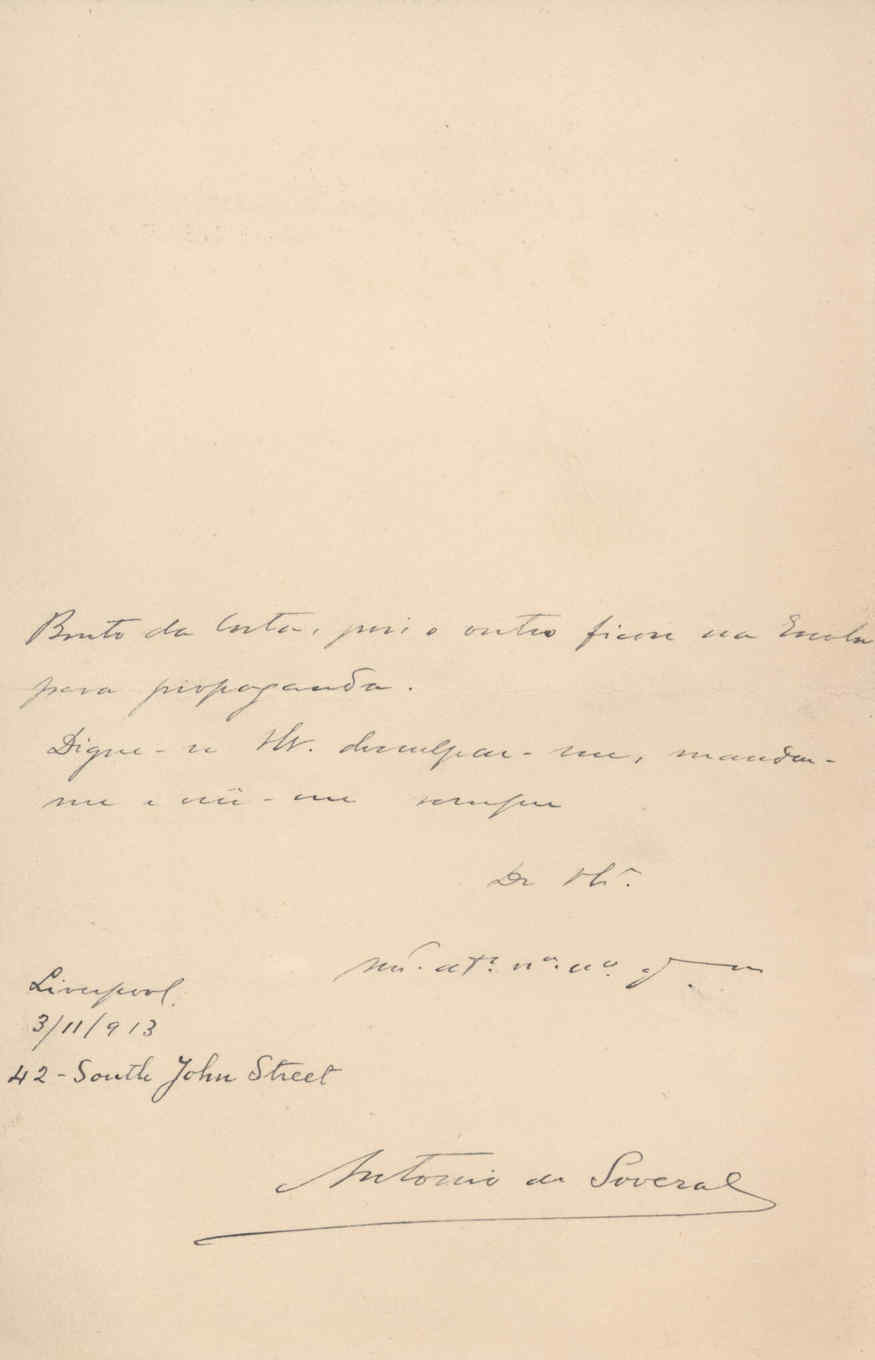 Bruto da Costa, pois o outro ficou na Escola
para propaganda.
Digne-se desculpar-me, mandar-
me e crêr-me sempre
De
Liverpool
3/11/913
42 - South John Street
Antonio de Soveral